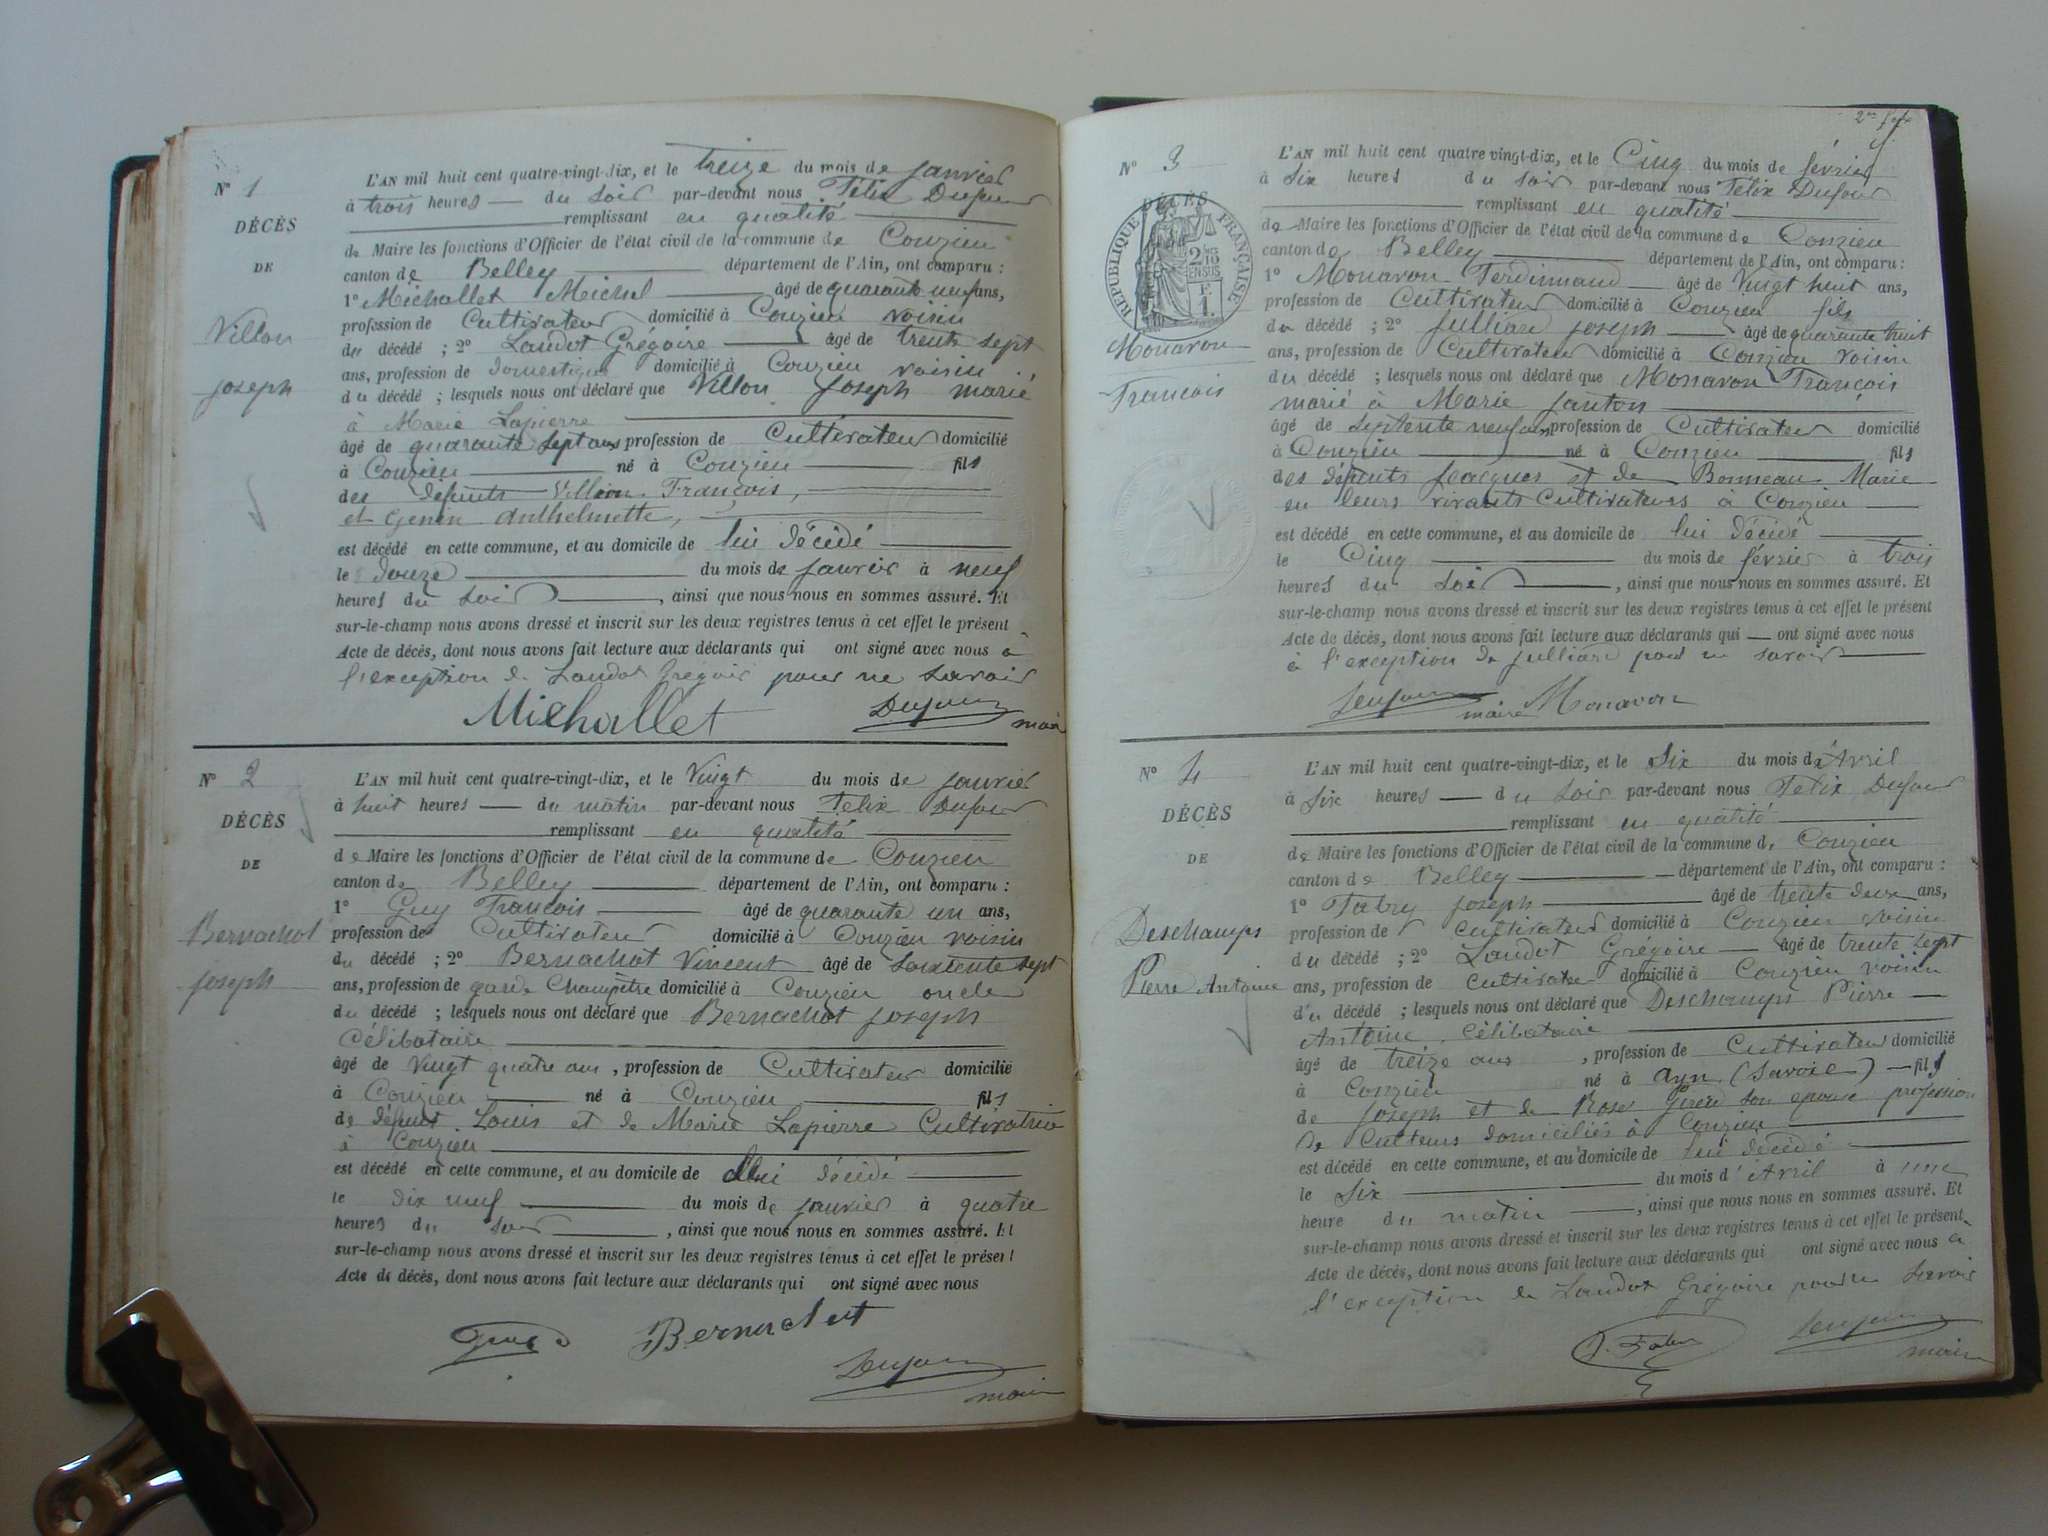 N° 1
DÉCÈS
DE
Villon
Joseph
L'AN mil huit cent quatre-vingt-dix, et le treize du mois de Janvier
à trois heures du soir par-devant nous Félix Dufour
remplissant en qualité
de Maire les fonctions d'Officier de l'état civil de la commune de Conzieu
canton de Belley département de l'Ain, ont comparu :
1° Michallet Michel âgé de quarante neuf ans,
profession de Cultivateur domicilié à Conzieu voisin
du décédé ; 2° Landot Grégoire âgé de trente sept
ans, profession de domestique domicilié à Conzieu voisin
du décédé ; lesquels nous ont déclaré que Villon Joseph marié
à Marie Lapierre
âgé de quarante sept ans profession de Cultivateur domicilié
à Conzieu né à Conzieu fils
des défunts Villon François,
et Genin Anthelmette,
est décédé en cette commune, et au domicile de lui décédé
le douze du mois de Janvier à neuf
heures du soir, ainsi que nous nous en sommes assuré. Et
sur-le-champ nous avons dressé et inscrit sur les deux registres tenus à cet effet le présent
Acte de décès, dont nous avons fait lecture aux déclarants qui ont signé avec nous à
l'exception de Landot Grégoire pour ne savoir
Michallet Dufour
maire
N° 2
DÉCÈS
DE
Bernachot
Joseph
L'AN mil huit cent quatre-vingt-dix, et le Vingt du mois de janvier
à huit heures du matin par-devant nous Félix Dufour
remplissant en qualité
de Maire les fonctions d'Officier de l'état civil de la commune de Conzieu
canton de Belley département de l'Ain, ont comparu :
1° Guy François âgé de quarante un ans,
profession de Cultivateur domicilié à Conzieu voisin
du décédé ; 2° Bernachot Vincent âgé de soixante sept
ans, profession de garde Champêtre domicilié à Conzieu oncle
du décédé ; lesquels nous ont déclaré que Bernachot Joseph
Célibataire
âgé de Vingt quatre ans, profession de Cultivateur domicilié
à Conzieu né à Conzieu fils
de défunt Louis et de Marie Lapierre Cultivatrice
à Conzieu
est décédé en cette commune, et au domicile de lui décédé
le dix neuf du mois de janvier à quatre
heures du soir, ainsi que nous nous en sommes assuré. Et
sur-le-champ nous avons dressé et inscrit sur les deux registres tenus à cet effet le présent
Acte de décès, dont nous avons fait lecture aux déclarants qui ont signé avec nous
Bernachot
Dufour
maire
N° 3
RÉPUBLIQUE FRANÇAISE
DÉCÈS
2/10 EN SUS
F 1.
Monavon
François
L'AN mil huit cent quatre vingt-dix, et le Cinq du mois de février
à Six heures du soir par-devant nous Félix Dufour
remplissant en qualité
de Maire les fonctions d'Officier de l'état civil de la commune de Conzieu
canton de Belley département de l'Ain, ont comparu :
1° Monavon Ferdinnand âgé de Vingt huit ans,
profession de Cultivateur domicilié à Conzieu fils
du décédé ; 2° Julliard Joseph âgé de quarante huit
ans, profession de Cultivateur domicilié à Conzieu voisin
du décédé ; lesquels nous ont déclaré que Monavon François
marié à Marie Janton
âgé de septente neuf ans profession de Cultivateur domicilié
à Conzieu né à Conzieu fils
des défunts Jacques et de Bonneau Marie
en leurs vivants Cultivateurs à Conzieu
est décédé en cette commune, et au domicile de lui décédé
le Cinq du mois de février à trois
heures du soir, ainsi que nous nous en sommes assuré. Et
sur-le-champ nous avons dressé et inscrit sur les deux registres tenus à cet effet le présent
Acte de décès, dont nous avons fait lecture aux déclarants qui — ont signé avec nous
à l'exception de Julliard pour ne savoir
Dufour maire Monavon
N° 4
DÉCÈS
DE
Deschamps
Pierre Antoine
L'AN mil huit cent quatre-vingt-dix, et le Six du mois d'Avril
à Six heures du soir par-devant nous Félix Dufour
remplissant en qualité
de Maire les fonctions d'Officier de l'état civil de la commune de Conzieu
canton de Belley département de l'Ain, ont comparu :
1° Fabry Joseph âgé de trente deux ans,
profession de cultivateur domicilié à Conzieu voisin
du décédé ; 2° Landot Grégoire âgé de trente sept
ans, profession de cultivateur domicilié à Conzieu voisin
du décédé ; lesquels nous ont déclaré que Deschamps Pierre
Antoine Célibataire
âgé de treize ans, profession de Cultivateur domicilié
à Conzieu né à Ayn (Savoie) fils
de Joseph et de Rose son épouse profession
de Culteurs domiciliés à Conzieu
est décédé en cette commune, et au domicile de lui décédé
le Six du mois d'Avril à une
heure du matin, ainsi que nous nous en sommes assuré. Et
sur-le-champ nous avons dressé et inscrit sur les deux registres tenus à cet effet le présent
Acte de décès, dont nous avons fait lecture aux déclarants qui ont signé avec nous à
l'exception de Landot Grégoire pour ne savoir
Dufour
maire